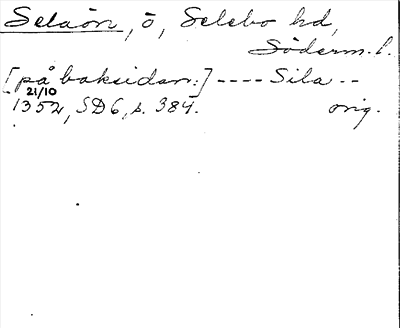 Selaön, ö, Selebo hd,
Söderm. l.
[på baksidan.] ---- Sila --
21/10
1352, SD 6, s. 384. orig.